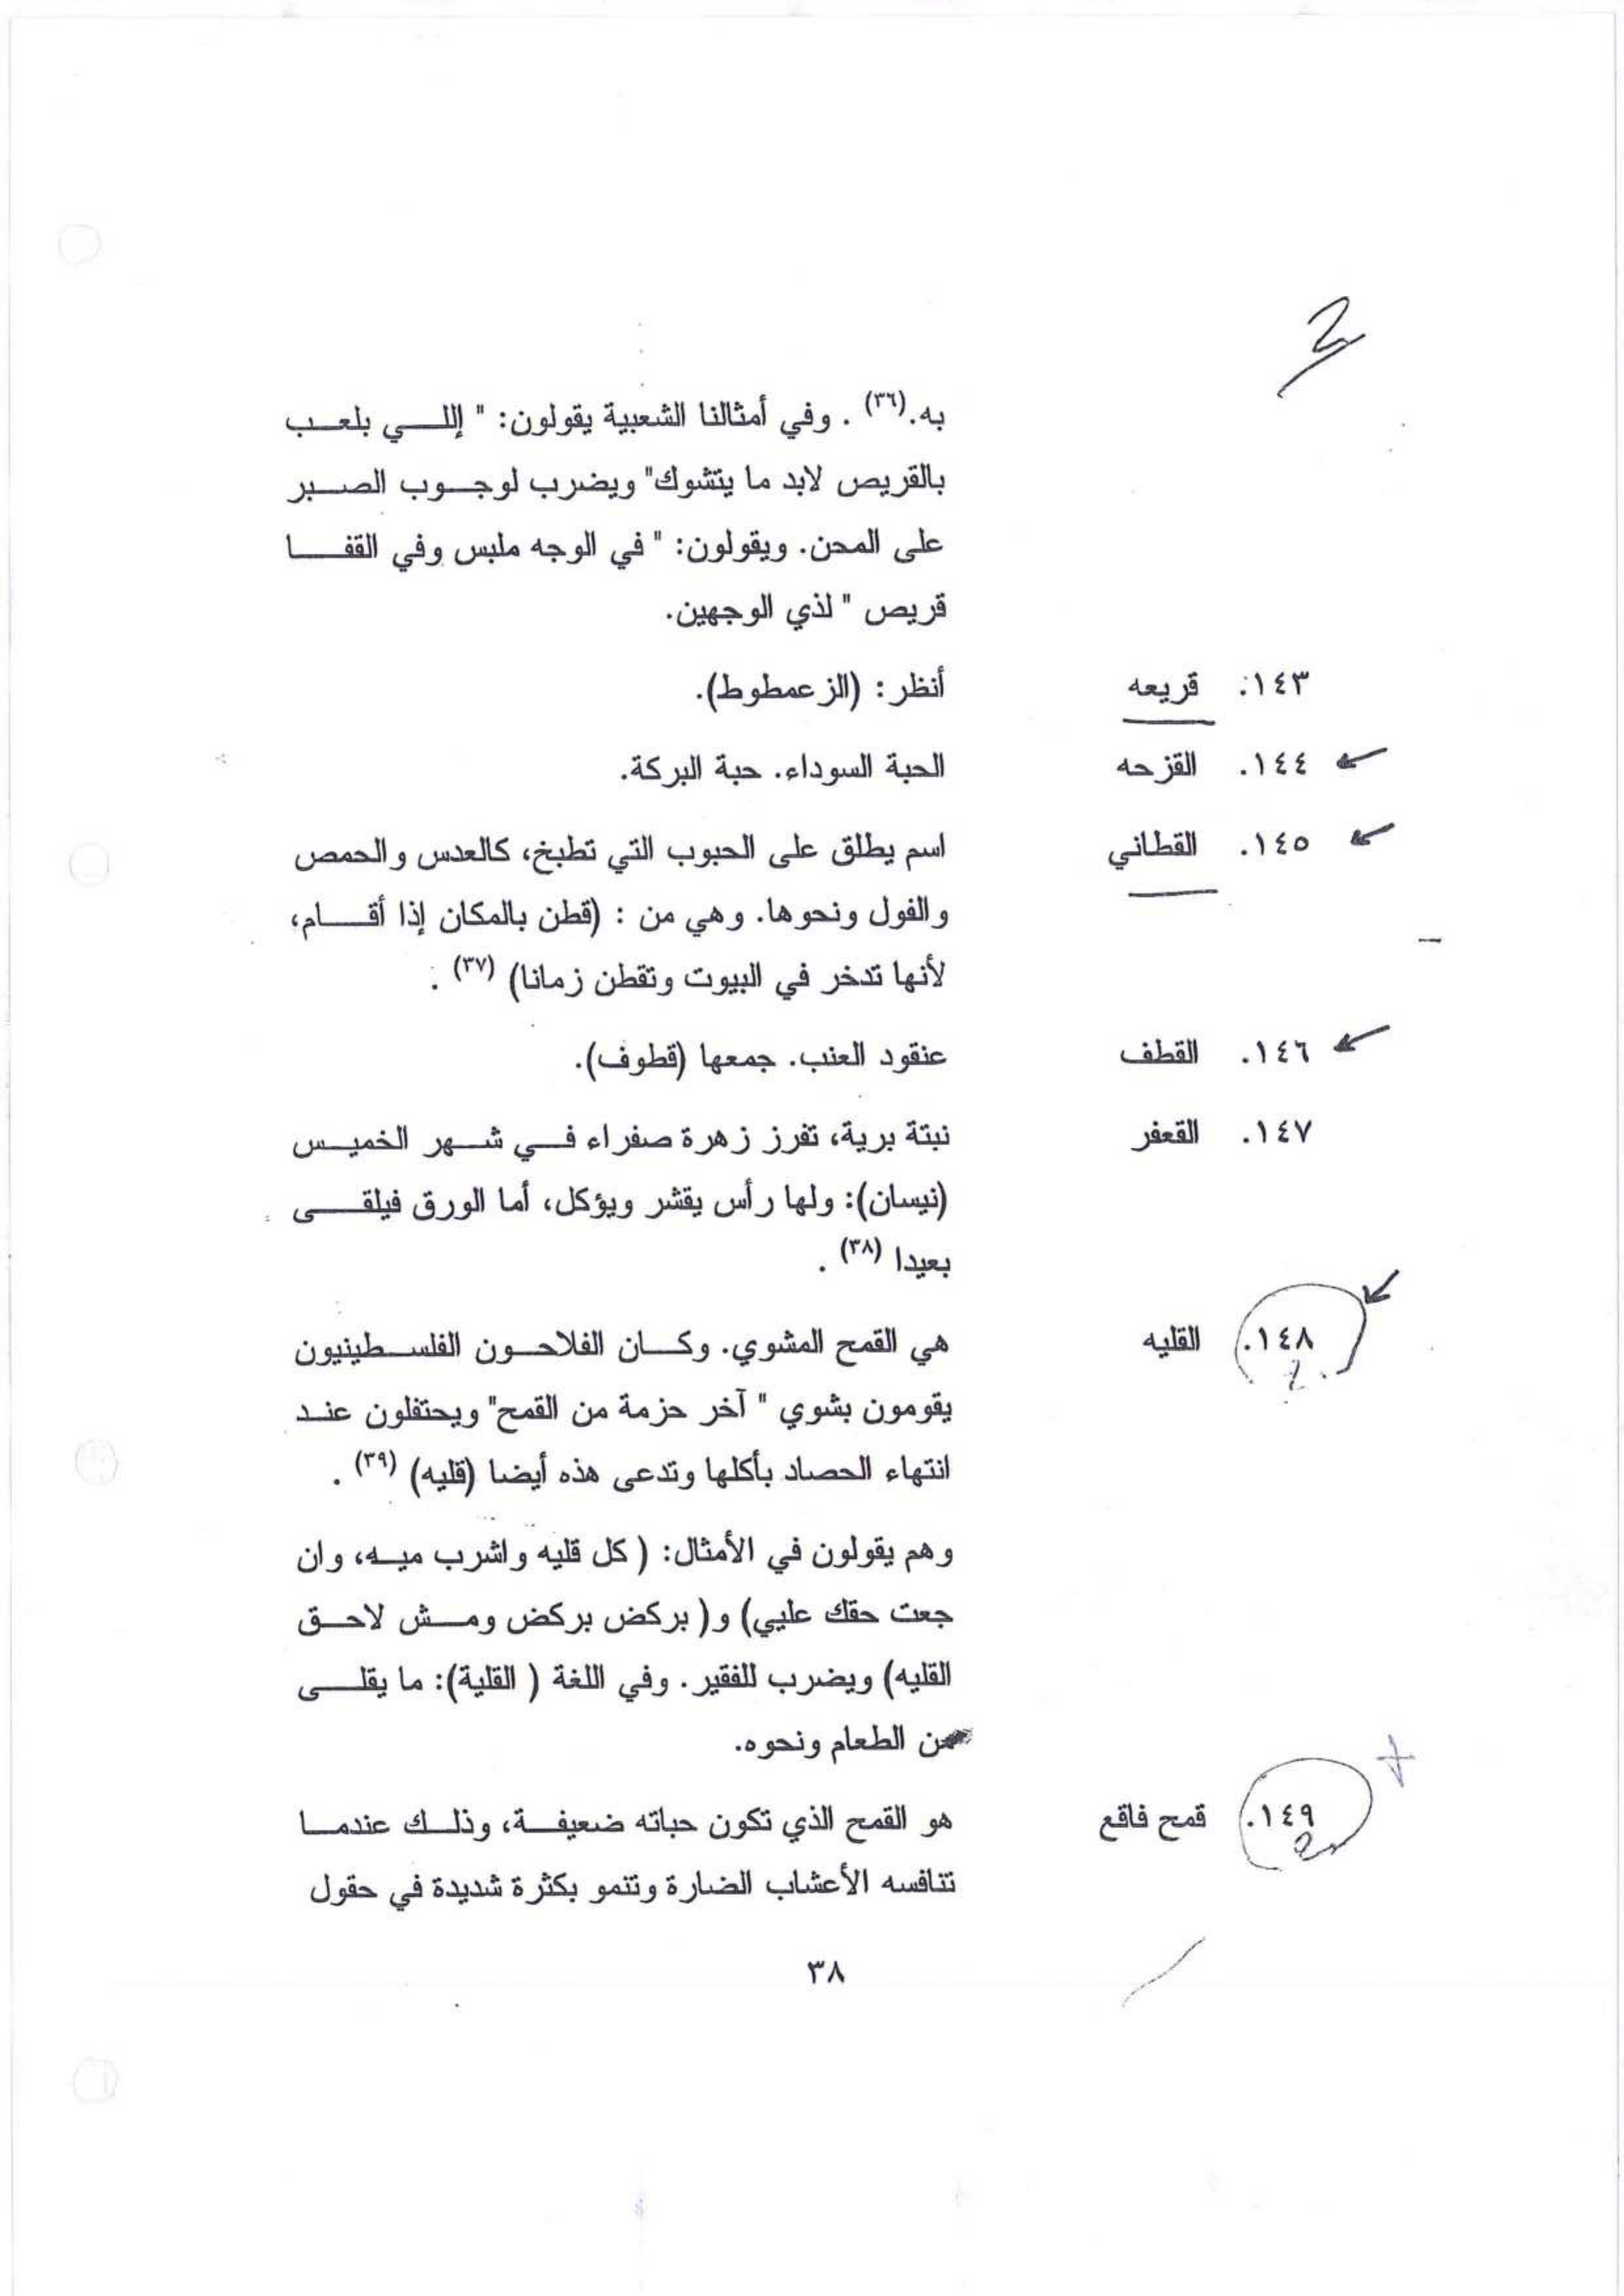 2
به.(٣٦) . وفي أمثالنا الشعبية يقولون: " إللي بلعب
بالقريص لابد ما يتشوك" ويضرب لوجوب الصبر
على المحن. ويقولون: " في الوجه ملبس وفي القفا
قريص " لذي الوجهين.
١٤٣. قريعه أنظر: (الزعمطوط).
١٤٤. القزحه الحبة السوداء. حبة البركة.
١٤٥. القطاني اسم يطلق على الحبوب التي تطبخ، كالعدس والحمص
والفول ونحوها. وهي من : (قطن بالمكان إذا أقام،
لأنها تدخر في البيوت وتقطن زمانا) (٣٧) .
١٤٦. القطف عنقود العنب. جمعها (قطوف).
١٤٧. القعفر نبتة برية، تفرز زهرة صفراء في شهر الخميس
(نيسان): ولها رأس يقشر ويؤكل، أما الورق فيلقى
بعيدا (٣٨) .
١٤٨. القليه هي القمح المشوي. وكان الفلاحون الفلسطينيون
يقومون بشوي " آخر حزمة من القمح" ويحتفلون عند
انتهاء الحصاد بأكلها وتدعى هذه أيضا (قليه) (٣٩) .
وهم يقولون في الأمثال: ( كل قليه واشرب ميه، وان
جعت حقك عليي) و( بركض بركض ومش لاحق
القليه) ويضرب للفقير. وفي اللغة ( القلية): ما يقلى
من الطعام ونحوه.
١٤٩. قمح فاقع هو القمح الذي تكون حباته ضعيفة، وذلك عندما
تنافسه الأعشاب الضارة وتنمو بكثرة شديدة في حقول
٣٨